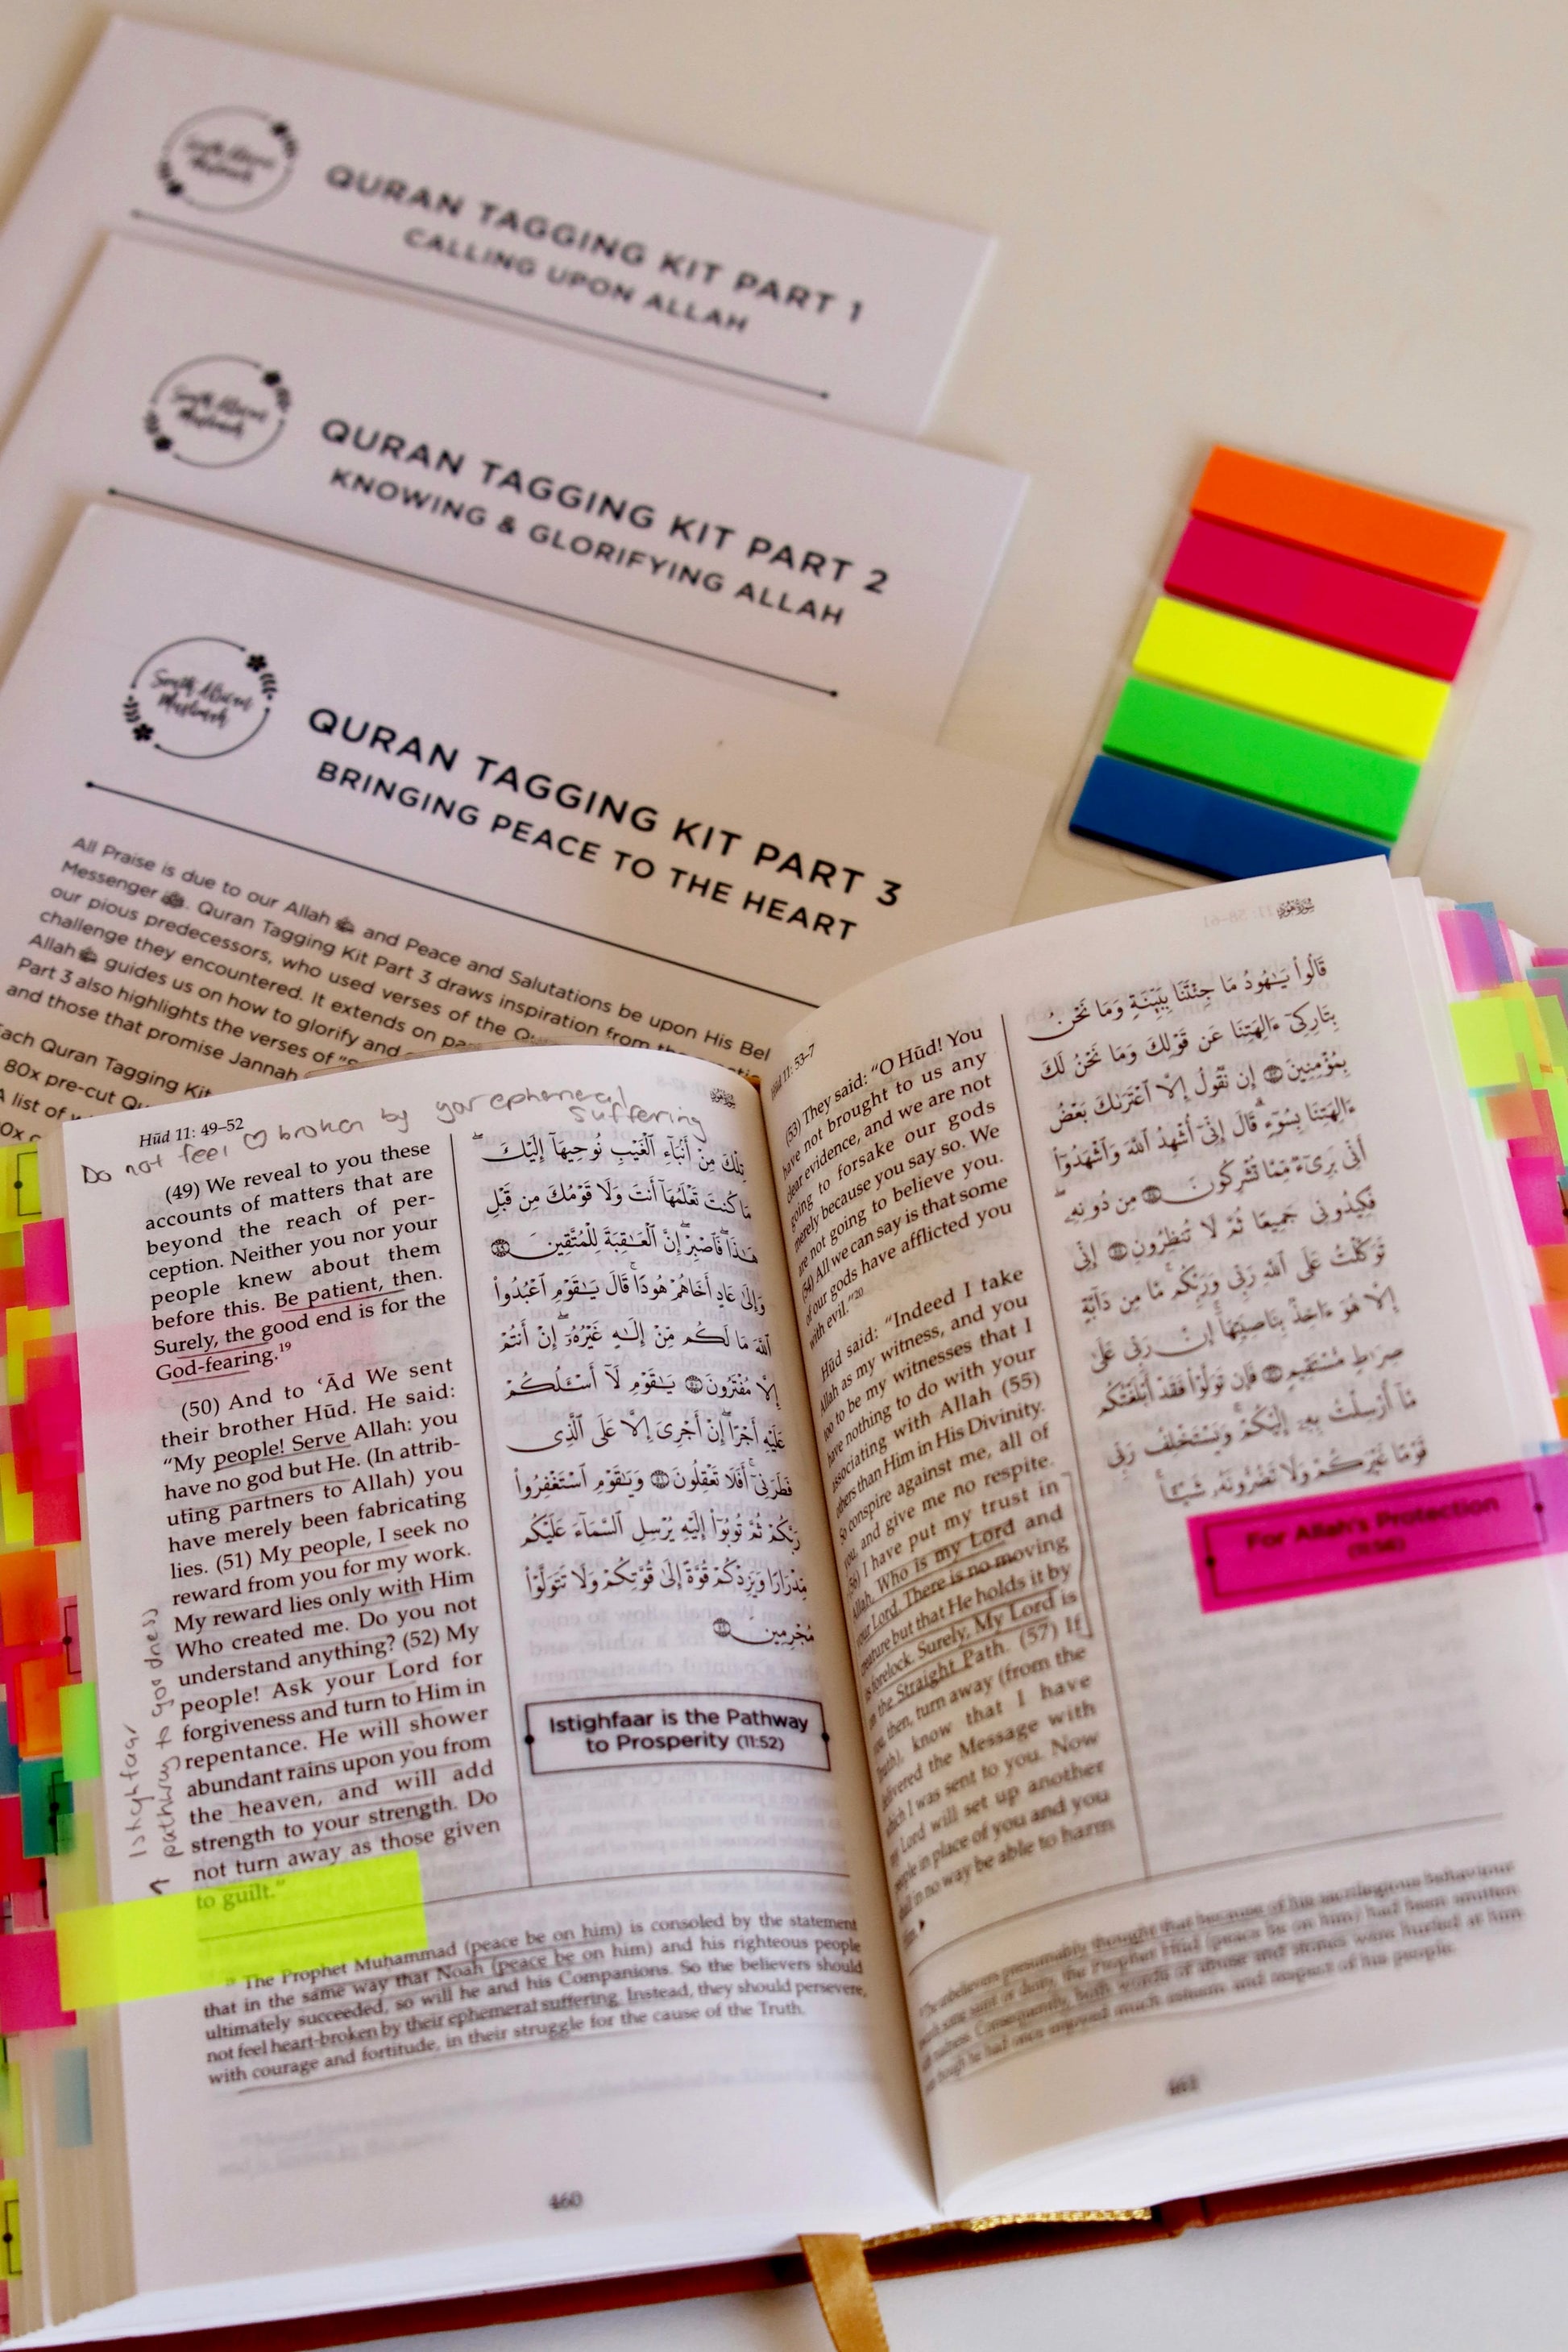 South African
Muslimah
QURAN TAGGING KIT PART 1
CALLING UPON ALLAH
South African
Muslimah
QURAN TAGGING KIT PART 2
KNOWING & GLORIFYING ALLAH
South African
Muslimah
QURAN TAGGING KIT PART 3
BRINGING PEACE TO THE HEART
All Praise is due to our Allah and Peace and Salutations be upon His Bel
Messenger. Quran Tagging Kit Part 3 draws inspiration from the
our pious predecessors, who used verses of the Qu
challenge they encountered. It extends on pa
Allah guides us on how to glorify and
Part 3 also highlights the verses of
and those that promise Jannah
Each Quran Tagging Kit
80x pre-cut Qu
A list of
Hūd 11: 49–52
Do not feel ♡ broken by your ephemeral
suffering
(49) We reveal to you these
accounts of matters that are
beyond the reach of per-
ception. Neither you nor your
people knew about them
before this. Be patient, then.
Surely, the good end is for the
God-fearing.19
(50) And to ʿĀd We sent
their brother Hūd. He said:
“My people! Serve Allah: you
have no god but He. (In attrib-
uting partners to Allah) you
have merely been fabricating
lies. (51) My people, I seek no
reward from you for my work.
My reward lies only with Him
Who created me. Do you not
understand anything? (52) My
people! Ask your Lord for
forgiveness and turn to Him in
repentance. He will shower
abundant rains upon you from
the heaven, and will add
strength to your strength. Do
not turn away as those given
to guilt.”
Istighfaar
pathway to goodness
تِلْكَ مِنْ أَنۢبَآءِ ٱلْغَيْبِ نُوحِيهَآ إِلَيْكَ ۖ
مَا كُنتَ تَعْلَمُهَآ أَنتَ وَلَا قَوْمُكَ مِن قَبْلِ
هَـٰذَا ۖ فَٱصْبِرْ ۖ إِنَّ ٱلْعَـٰقِبَةَ لِلْمُتَّقِينَ ٤٩
وَإِلَىٰ عَادٍ أَخَاهُمْ هُودًا ۚ قَالَ يَـٰقَوْمِ ٱعْبُدُوا۟
ٱللَّهَ مَا لَكُم مِّنْ إِلَـٰهٍ غَيْرُهُۥٓ ۖ إِنْ أَنتُمْ
إِلَّا مُفْتَرُونَ ٥٠ يَـٰقَوْمِ لَآ أَسْـَٔلُكُمْ
عَلَيْهِ أَجْرًا ۖ إِنْ أَجْرِىَ إِلَّا عَلَى ٱلَّذِى
فَطَرَنِىٓ ۚ أَفَلَا تَعْقِلُونَ ٥١ وَيَـٰقَوْمِ ٱسْتَغْفِرُوا۟
رَبَّكُمْ ثُمَّ تُوبُوٓا۟ إِلَيْهِ يُرْسِلِ ٱلسَّمَآءَ عَلَيْكُم
مِّدْرَارًا وَيَزِدْكُمْ قُوَّةً إِلَىٰ قُوَّتِكُمْ وَلَا تَتَوَلَّوْا۟
مُجْرِمِينَ ٥٢
Istighfaar is the Pathway
to Prosperity (11:52)
The Prophet Muḥammad (peace be on him) is consoled by the statement
that in the same way that Noah (peace be on him) and his righteous people
ultimately succeeded, so will he and his Companions. So the believers should
not feel heart-broken by their ephemeral suffering. Instead, they should persevere,
with courage and fortitude, in their struggle for the cause of the Truth.
460
Hūd 11: 53–7
(53) They said: “O Hūd! You
have not brought to us any
clear evidence, and we are not
going to forsake our gods
merely because you say so. We
are not going to believe you.
(54) All we can say is that some
of our gods have afflicted you
with evil.”20
Hūd said: “Indeed I take
Allah as my witness, and you
too to be my witnesses that I
have nothing to do with your
associating with Allah (55)
others than Him in His Divinity.
So conspire against me, all of
you, and give me no respite.
(56) I have put my trust in
Allah, Who is my Lord and
your Lord. There is no moving
creature but that He holds it by
its forelock. Surely, My Lord is
on the Straight Path. (57) If
you, then, turn away (from the
Truth), know that I have
delivered the Message with
which I was sent to you. Now
my Lord will set up another
people in place of you and you
shall in no way be able to harm
Him.
قَالُوا۟ يَـٰهُودُ مَا جِئْتَنَا بِبَيِّنَةٍ وَمَا نَحْنُ
بِتَارِكِىٓ ءَالِهَتِنَا عَن قَوْلِكَ وَمَا نَحْنُ لَكَ
بِمُؤْمِنِينَ ٥٣ إِن نَّقُولُ إِلَّا ٱعْتَرَىٰكَ بَعْضُ
ءَالِهَتِنَا بِسُوٓءٍ ۗ قَالَ إِنِّىٓ أُشْهِدُ ٱللَّهَ وَٱشْهَدُوٓا۟
أَنِّى بَرِىٓءٌ مِّمَّا تُشْرِكُونَ ٥٤ مِن دُونِهِۦ ۖ
فَكِيدُونِى جَمِيعًا ثُمَّ لَا تُنظِرُونِ ٥٥ إِنِّى
تَوَكَّلْتُ عَلَى ٱللَّهِ رَبِّى وَرَبِّكُم ۚ مَّا مِن دَآبَّةٍ
إِلَّا هُوَ ءَاخِذٌۢ بِنَاصِيَتِهَآ ۚ إِنَّ رَبِّى عَلَىٰ
صِرَٰطٍ مُّسْتَقِيمٍ ٥٦ فَإِن تَوَلَّوْا۟ فَقَدْ أَبْلَغْتُكُم
مَّآ أُرْسِلْتُ بِهِۦٓ إِلَيْكُمْ ۚ وَيَسْتَخْلِفُ رَبِّى
قَوْمًا غَيْرَكُمْ وَلَا تَضُرُّونَهُۥ شَيْـًٔا ۚ
For Allah's Protection
(11:56)
unbelievers presumably thought that because of his sacrilegious behaviour
the Prophet Hūd (peace be on him) had been smitten
Consequently, both words of abuse and stones were hurled at him
though he had once enjoyed much esteem and respect of his people.
461